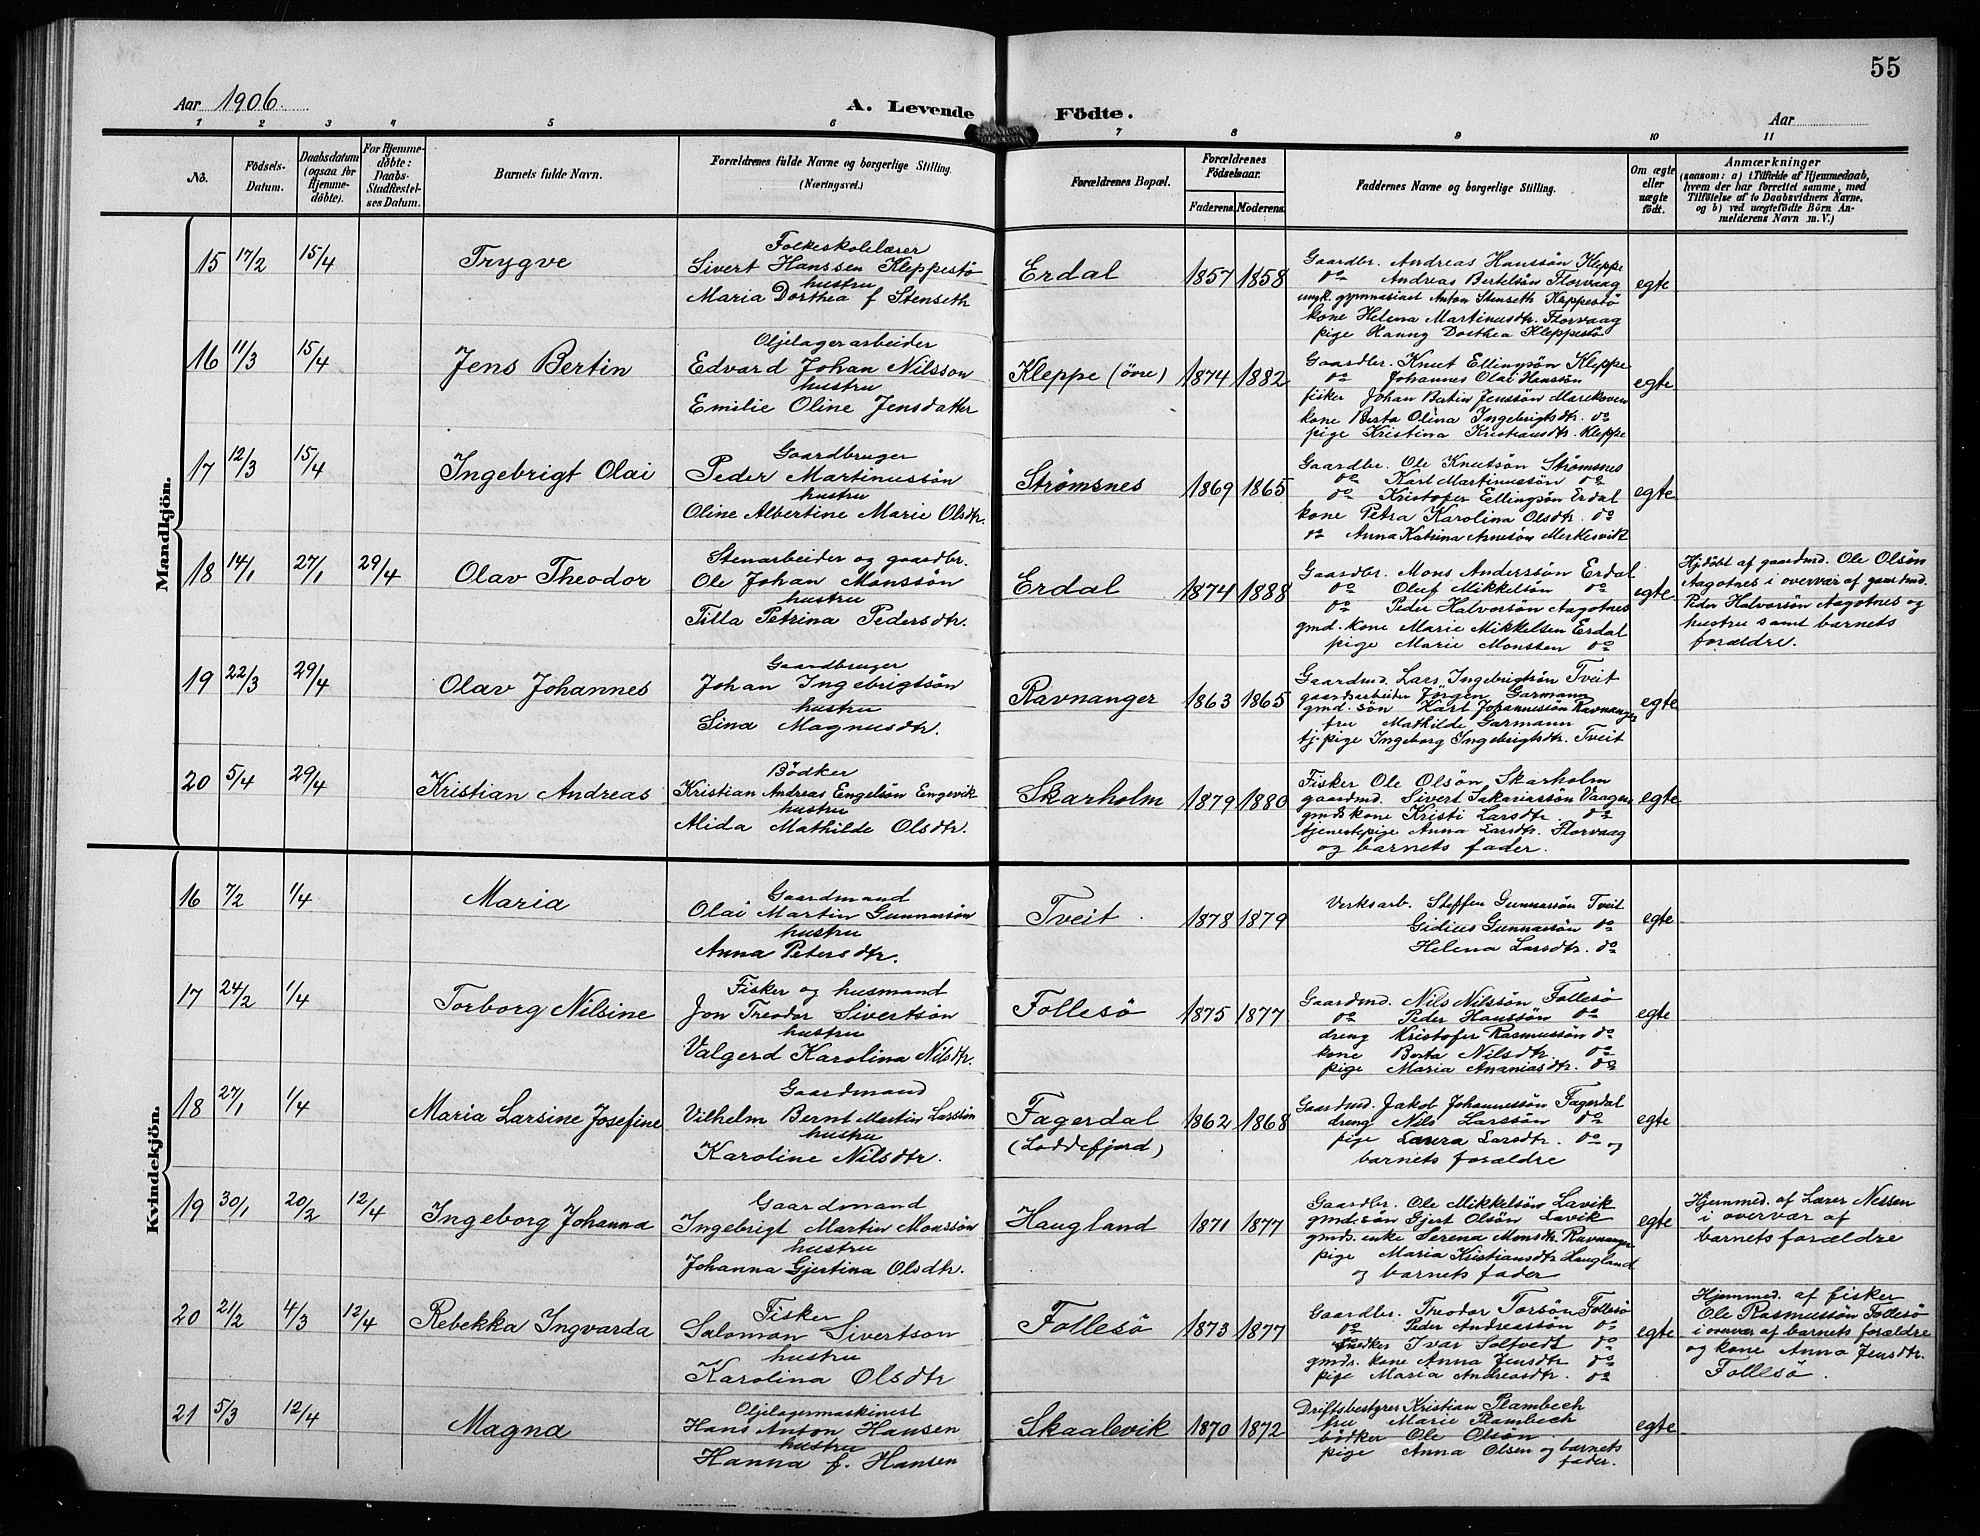 55
Aar 1906.
A. Levende Födte.
Aar
1 2 3 4 5 6 7 8 9 10 11
No.
Födsels-Datum.
Daabsdatum (ogsaa for Hjemme-döbte).
For Hjemme-döbte: Daabs-Stadfæstel-ses Datum.
Barnets fulde Navn.
Forældrenes fulde Navne og borgerlige Stilling. (Næringsvei.)
Forældrenes Bopæl.
Forældrenes Födselsaar.
Faderens. Moderens.
Faddernes Navne og borgerlige Stilling.
Om ægte eller uægte födt.
Anmærkninger
(saasom: a) i Tilfælde af Hjemmedaab,
hvem der har forrettet samme, med
Tilföielse af to Daabsvidners Navne,
og b) ved uægtefödte Börn An-
melderens Navn m. V.)
Mandkjön.
15 17/2 15/4 Trygve
Folkeskolelærer
Sivert Hanssen Kleppestø
hustru
Maria Dorthea f Stenseth
Erdal 1857 1858
Gaardbr. Andreas Hanssön Kleppe
do Andreas Bertelsön Florvaag
ungk. gymnasiast Anton Stenseth Kleppestö
kone Helena Martinusdtr. Florvaag
pige Ranny Dorthea Kleppestö
egte
16 11/3 15/4 Jens Bertin
Oljelagerarbeider
Edvard Johan Nilsson
hustru
Emilie Oline Jensdatter
Kleppe (övre) 1874 1882
Gaardbr. Knut Ellingsön Kleppe
do Johannes Olai Hanssön
fisker Johan Bertin Jenssön Marikoven
kone Berta Olina Ingebrigtsdtr. do
pige Kristina Kristiansdtr. Kleppe
egte
17 12/3 15/4 Ingebrigt Olai
Gaardbruger
Peder Martinussön
hustru
Oline Albertine Marie Olsdtr.
Strømsnes 1869 1865
Gaardbr. Ole Knutsön Strømsnes
do Karl Martinussön do
do Kristofer Ellingsön Erdal
kone Petra Karolina Olsdtr. do
do Anna Katrina Arnesön Merkesvik
egte
18 14/1 27/1 29/4 Olav Theodor
Stenarbeider og gaardbr.
Ole Johan Monssön
hustru
Tilla Petrina Pedersdtr.
Erdal 1874 1888
Gaardbr. Mons Anderssön Erdal
do Oluf Mikkelsön do
do Peder Halvorsön Aagotnes
gmd. kone Marie Mikkelsen Erdal
pige Marie Monssen do
egte
Hjdöbt af gaardmd. Ole Olsön
Aagotnes i overvær af gaardmd.
Peder Halvorsön Aagotnes og
hustru samt barnets
forældre.
19 22/3 29/4 Olav Johannes
Gaardbruger
Johan Ingebrigtsön
hustru
Sina Magnusdtr.
Ravnanger 1863 1865
Gaardmd. Lars Ingebrigtsön Tveit
gaardsarbeider Jörgen Garmann
gmd. sön Karl Johannessön Ravnanger
fru Mathilde Garmann
tj. pige Ingeborg Ingebrigtsdtr. Tveit
egte
20 5/4 29/4 Kristian Andreas
Bödker
Kristian Andreas Engelsön Engevik
hustru
Alida Mathilde Olsdtr.
Skarholm 1879 1880
Fisker Ole Olsön Skarholm
gaardmd. Sivert Sakariassön Vaagen
gmds kone Kristi Larsdtr. do
tjenestepige Anna Larsdtr. Florvaag
og barnets fader.
egte
Kvindekjön.
16 7/2 1/4 Maria
Gaardmand
Olai Martin Gunnarsön
hustru
Anna Petersdtr.
Tveit 1878 1879
Verksarb. Steffen Gunnarsön Tveit
Gidius Gunnarsön do
Helena Larsdtr. do
egte
17 24/2 1/4 Torborg Nilsine
Fisker og husmand
Jon Treodor Sivertsön
hustru
Valgerd Karolina Nilsdtr.
Follesö 1875 1877
Gaardmd. Nils Nilssön Follesö
do Peder Hanssön do
dreng Kristofer Rasmussön do
kone Berta Nilsdtr. do
pige Maria Ananiasdtr. do
egte
18 27/1 1/4 Maria Larsine Josefine
Gaardmand
Vilhelm Bernt Martin Larssön
hustru
Karoline Nilsdtr.
Fagerdal
(Loddefjord)
1862 1868
Gaardmd. Jakob Johannessön Fagerdal
dreng Nils Larssön do
pige Laura Larsdtr. do og
barnets forældre
egte
19 30/1 20/2 12/4 Ingeborg Johanna
Gaardmand
Ingebrigt Martin Monssön
hustru
Johanna Gjertina Olsdtr.
Haugland 1871 1877
Gaardbr. Ole Mikkelsön Lavik
gmd. sön Gjert Olsön Lavik
gmds. enke Serena Monsdtr Ravnanger
pige Maria Kristiansdtr Haugland
og barnets fader
egte
Hjemmed. af Lærer Nessen
i overvær af
barnets forældre
20 21/2 4/3 12/4 Rebekka Ingvarda
Fisker
Salomon Sivertson
hustru
Karolina Olsdtr
Follesö 1873 1877
Gaardbr. Theodor Torsön Follesö
do Peder Andreassön do
Snedker Ivar Soltvedt do
gmds. kone Anna Jensdtr do
pige Maria Andreasdtr. do
egte
Hjemmed. af fisker
Ole Rasmussön Follesö
i overvær af barnets forældre
og kone Anna Jensdtr.
Follesö.
21 5/3 12/4 Magna
Oljelagermaskinist
Hans Anton Hansen
hustru
Hanna f. Hansen
Skaalevik 1870 1872
Driftsbestyrer Kristian Plambech
fru Marie Plambech
bödker Ole Olsön
pige Anna Olsen og barnets
fader.
egte